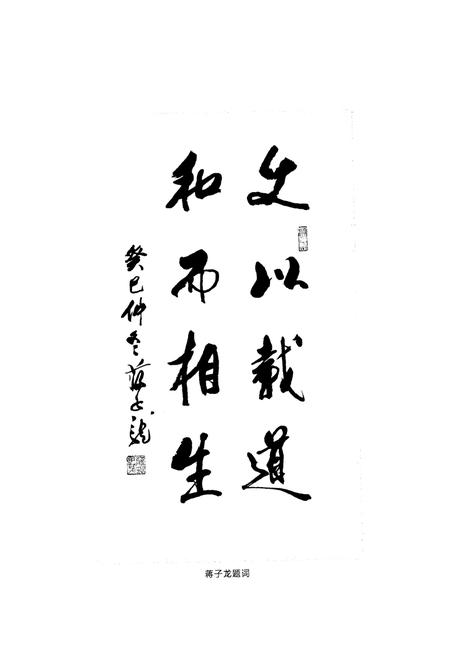 文以載道
和而相生
癸巳仲冬蔣子龍
蒋子龙题词